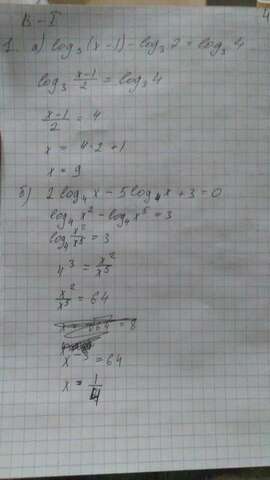 В-I
1. а) log₃(x-1) - log₃2 = log₃4
log₃ (x-1)/2 = log₃4
(x-1)/2 = 4
x = 4·2+1
x = 9
б) 2log₄x - 5log₄x + 3 = 0
log₄x² - log₄x⁵ = 3
log₄ x²/x⁵ = 3
4³ = x²/x⁵
x²/x⁵ = 64
= 8
x⁻³ = 64
x = 1/4